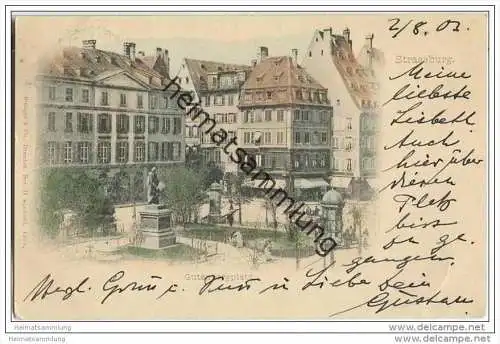 2/8. 02.
Strassburg.
Meine
liebste
Liesbett
Auch
hier über
diesen
Platz
bist
du ge-
gangen.
Hrzl. Gruss u. Kuss u Liebe Dein
Gustav
Gutenbergplatz
heimatsammlung.de
Heimatsammlung
Heimatsammlung
www.heimatsammlung.de
www.heimatsammlung.de